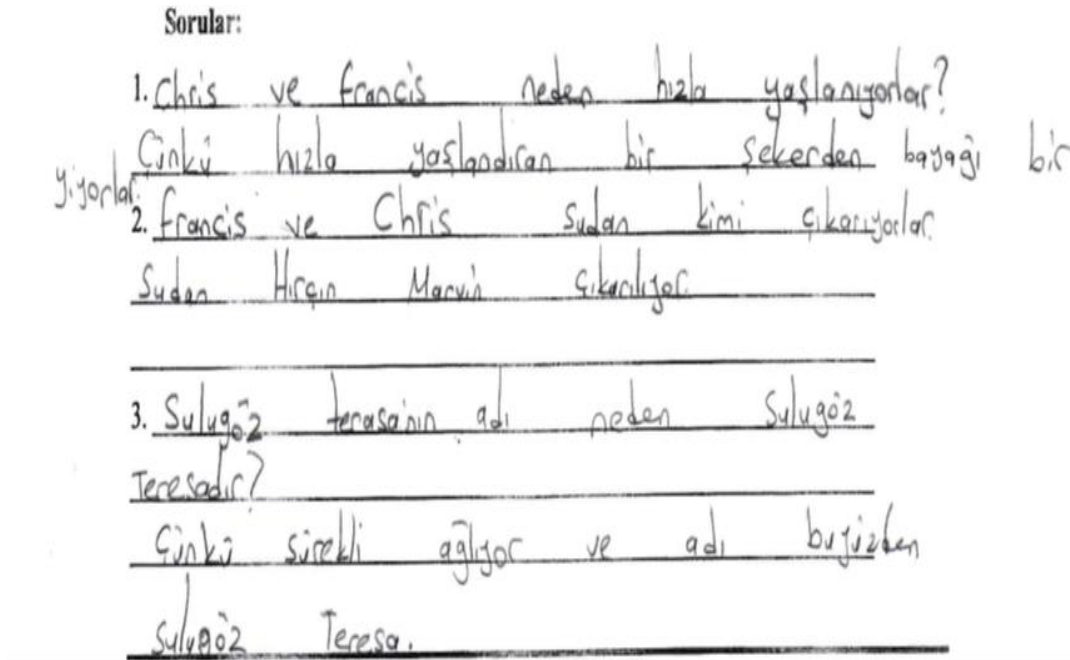 Sorular:
1. Chris ve francis neden hızla yaşlanıyorlar?
Çünkü hızla yaşlandıran bir şekerden bayağı bir
yiyorlar.
2. francis ve Chris sudan kimi çıkarıyorlar.
Sudan Hırçın Marvin çıkarılıyor.
3. Sulugöz terasa'nın adı neden Sulugöz
Teresadır?
Çünkü sürekli ağlıyor ve adı buyüzden
Sulugöz Teresa.